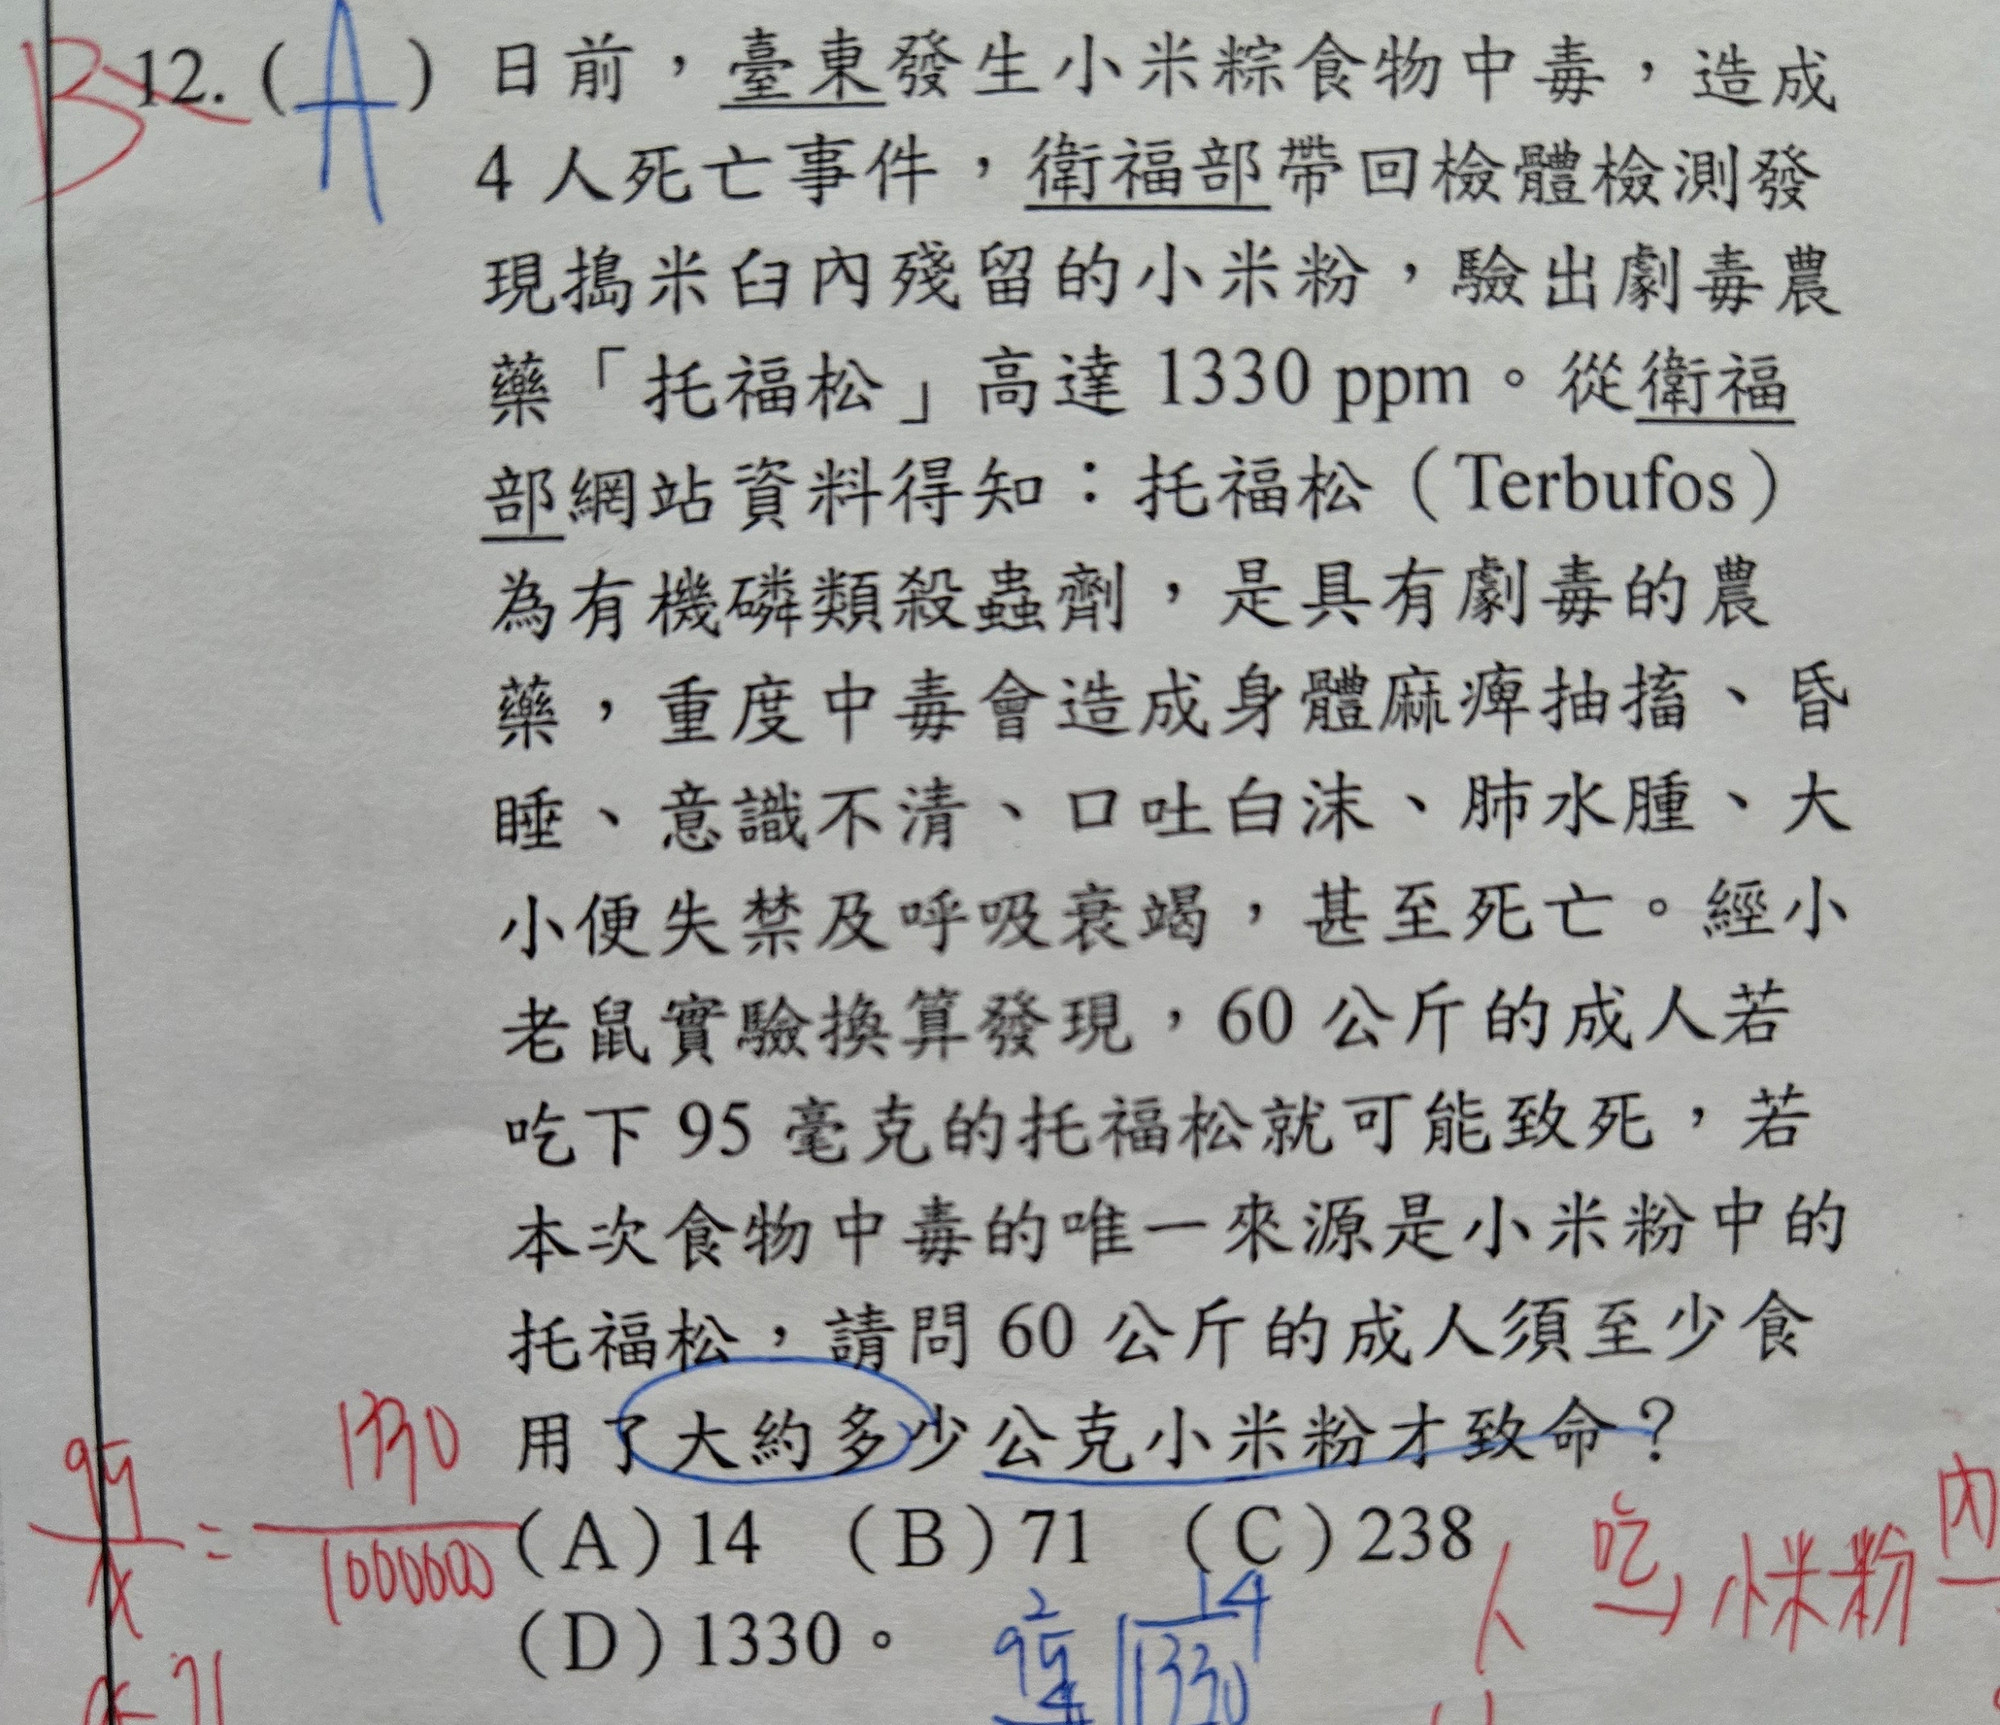 B 12.(A) 日前，臺東發生小米粽食物中毒，造成
4 人死亡事件，衛福部帶回檢體檢測發
現搗米臼內殘留的小米粉，驗出劇毒農
藥「托福松」高達 1330 ppm。從衛福
部網站資料得知：托福松（Terbufos）
為有機磷類殺蟲劑，是具有劇毒的農
藥，重度中毒會造成身體麻痺抽搐、昏
睡、意識不清、口吐白沫、肺水腫、大
小便失禁及呼吸衰竭，甚至死亡。經小
老鼠實驗換算發現，60 公斤的成人若
吃下 95 毫克的托福松就可能致死，若
本次食物中毒的唯一來源是小米粉中的
托福松，請問 60 公斤的成人須至少食
用了大約多少公克小米粉才致命？
（A）14 （B）71 （C）238
（D）1330。
95/x = 1330/1000000
14
95 1330
人 吃 小米粉 內